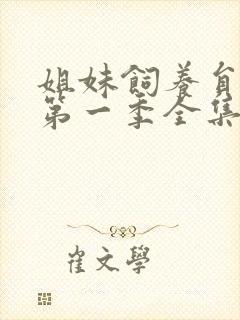 姐妹飼養員
第一季全集
崔文學